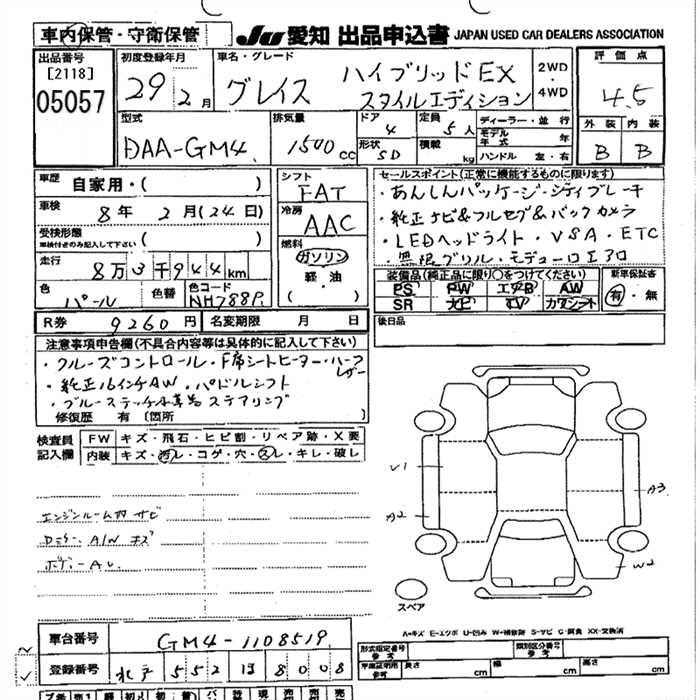 車内保管・守衛保管
JU 愛知 出品申込書 JAPAN USED CAR DEALERS ASSOCIATION
出品番号 [2118] 05057
初度登録年月 29年2月
車名・グレード グレイス ハイブリッドEX スタイルエディション
2WD・4WD
評価点 4.5
外装 B 内装 B
型式 DAA-GM4
排気量 1500cc
ドア 4 形状 SD
定員 5人 積載 kg
ディーラー・並行
モデル年式 年
ハンドル 左・右
車歴 自家用・( )
車検 8年 2月(24日)
受検形態 車検付きのみ記入して下さい ( )
走行 8万3千944km
色 パール 色替 色コード NH788P
シフト FAT
冷房 AAC
燃料 ガソリン・軽油・( )
セールスポイント(正常に機能するものに限ります)
・あんしんパッケージ・シティブレーキ
・純正ナビ&フルセグ&バックカメラ
・LEDヘッドライト・VSA・ETC
・無限グリル・モデューロエアロ
装備品(純正品に限り○をつけてください)
PS PW エアB AW
SR ナビ TV カワシート
新車保証書 有・無
R券 9260円 名変期限 月 日
後日品
注意事項申告欄(不具合内容等は具体的に記入して下さい)
・クルーズコントロール・F席シートヒーター・ハーフレザー
・純正16インチAW・パドルシフト
・ブルーステッチ本革巻ステアリング
修復歴 有 〔箇所
検査員記入欄 FW キズ・飛石・ヒビ割・リペア跡・X要
内装 キズ・汚レ・コゲ・穴・スレ・キレ・破レ
エンジンルーム内サビ
Dミラー、A/Wキズ
ボディーAU
V1
A2
A3
W2
スペア
A=キズ E=エクボ U=凹み W=補修跡 S=サビ C=腐食 XX=交換済
車台番号 GM4-1108519
登録番号 水戸 552 ほ 8008
形式指定番号 参考 類別区分番号 参考
車庫証明用 参考 長さ cm 幅 cm 高さ cm